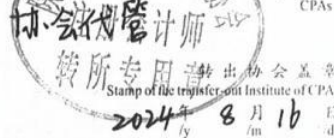 CPAs
协会代管
计师
转所专用章
转出协会盖章
Stamp of the transfer-out Institute of CPA
2024年 8月16日
/y /m /d